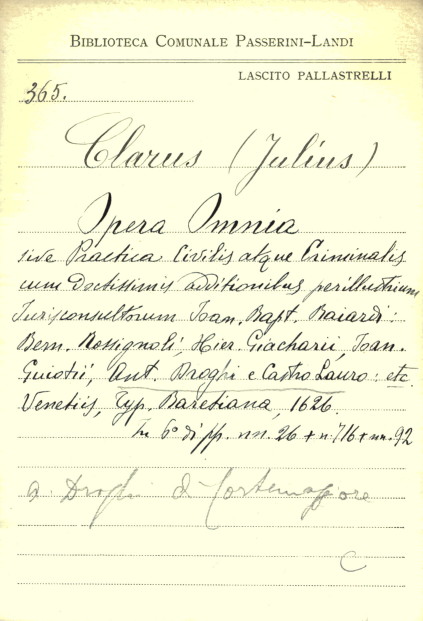 BIBLIOTECA COMUNALE PASSERINI-LANDI
LASCITO PALLASTRELLI
365.
Clarus (Julius)
Opera Omnia
sive Practica Civilis atque Criminalis
cum Doctissimis additionibus perillustrium
Jurisconsultorum Joan. Bapt. Baiardi:
Bern. Rossignoli, Hier. Giacharii, Joan.
Guiotii, Ant. Droghi e Castro Lauro: etc.
Venetiis, Typ. Baretiana, 1626.
In 6° di pp. nn. 26 + n. 716 + nn. 92
Droghi di Cortemaggiore
C